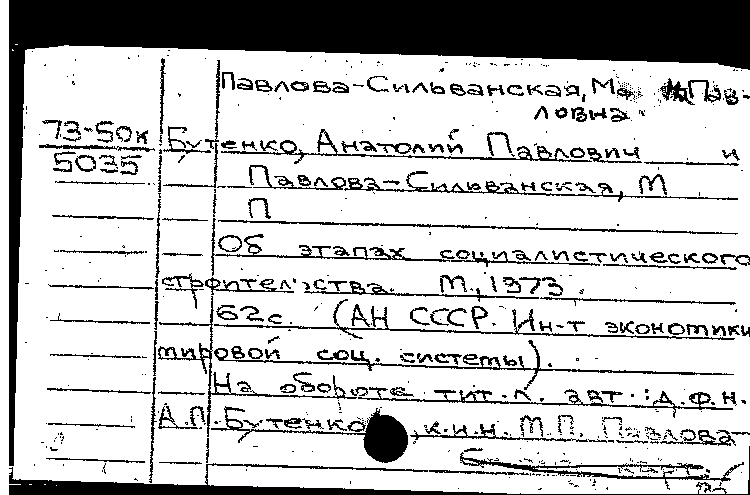 Павлова-Сильванская, М Пав-
ловна.
73-50к
5035
Бутенко, Анатолий Павлович и
Павлова-Сильванская, М
П
Об этапах социалистического
строительства. М., 1973.
62с. (АН СССР. Ин-т экономики
мировой соц. системы).
На обороте тит. л. авт.: д.ф.н.
А.П. Бутенко, к.и.н. М.П. Павлова-